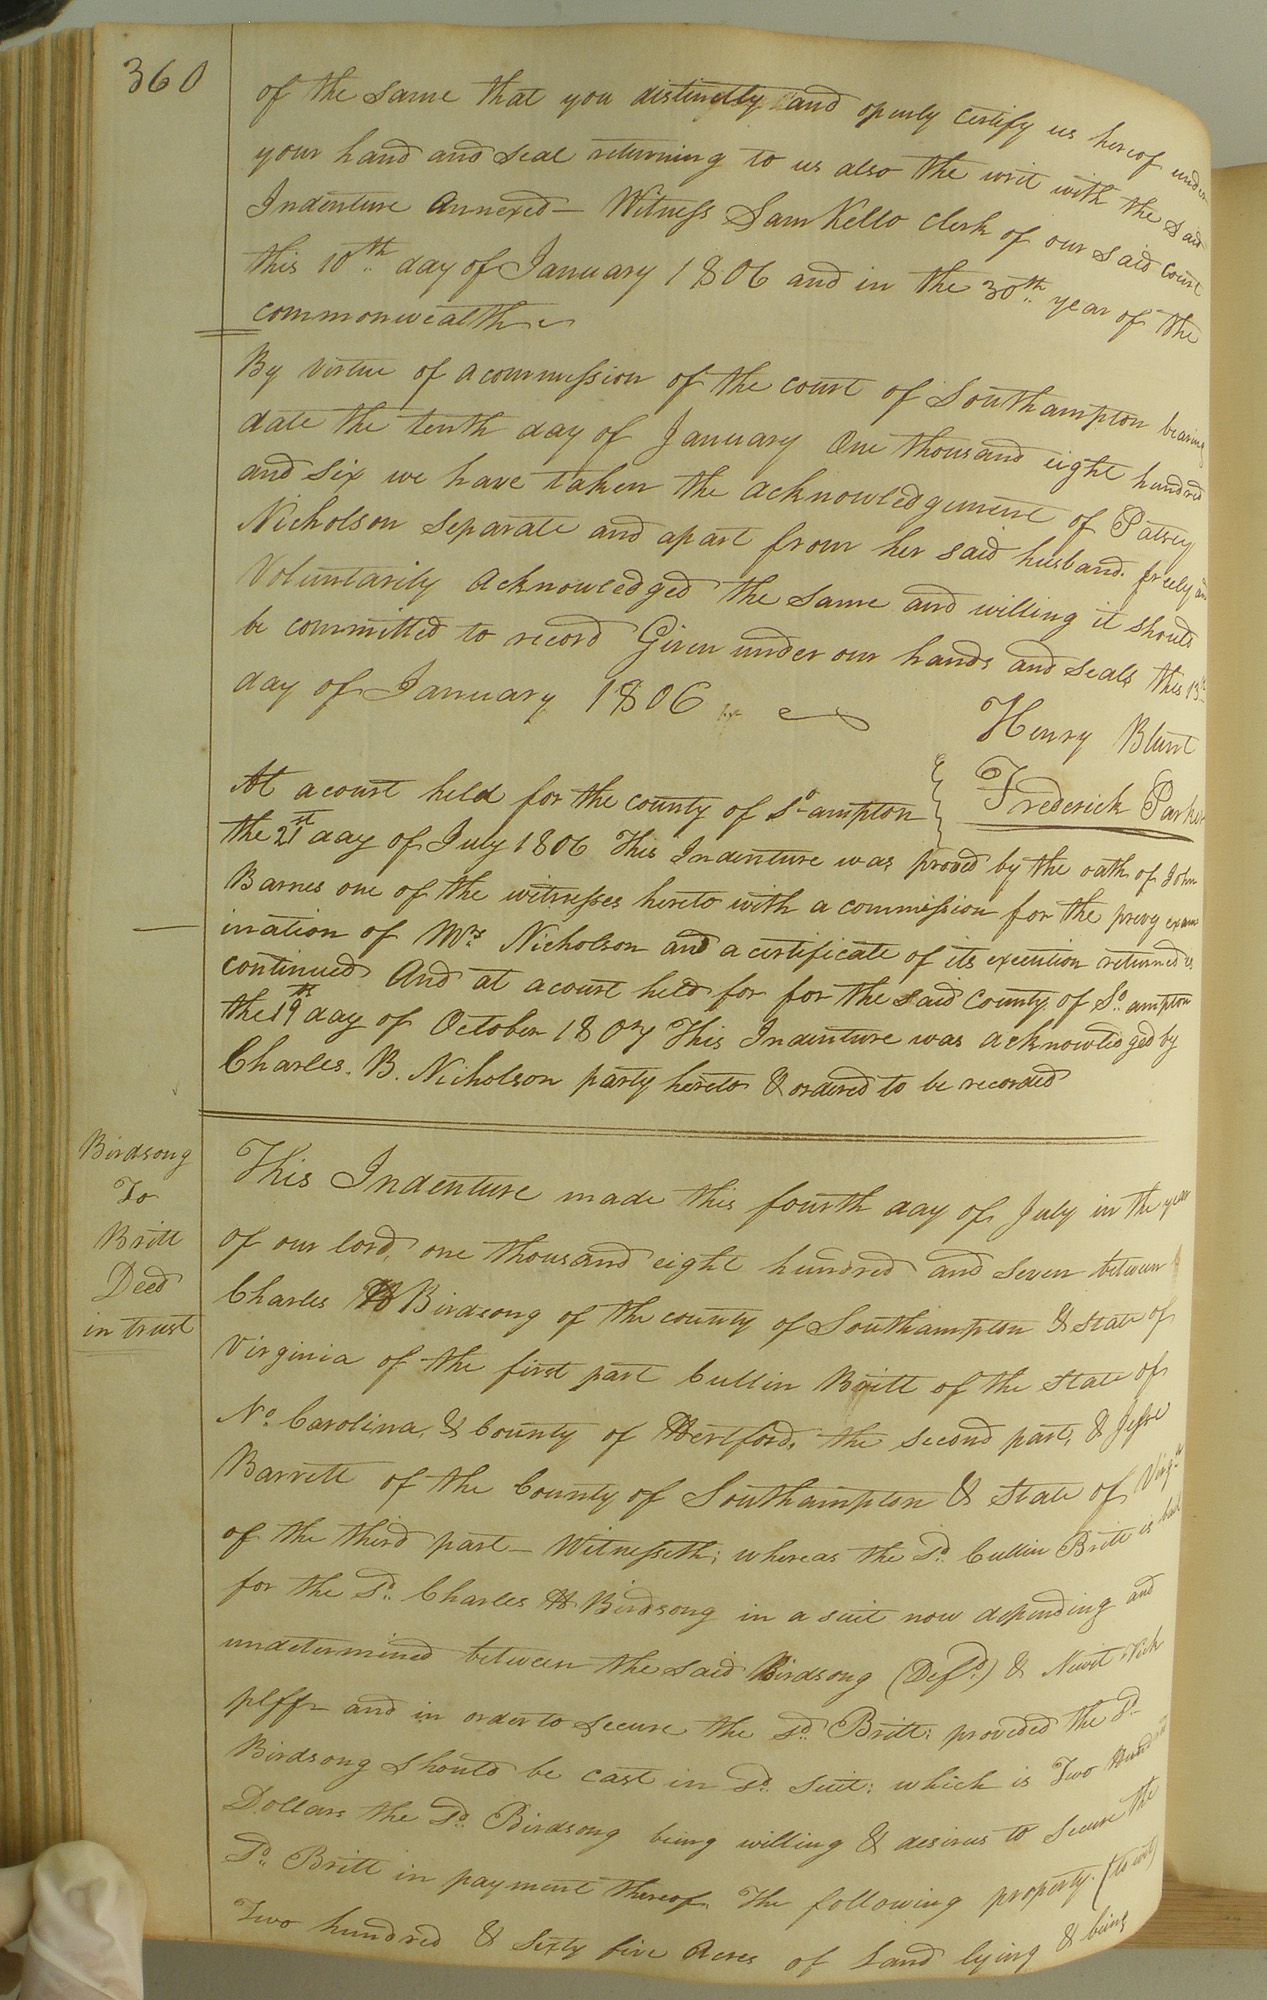 360
of the same that you distinctly and openly certify us hereof under
your hand and seal returning to us also the writ with the said
Indenture annexed — Witness Sam Kello Clerk of our said Court
this 10th day of January 1806 and in the 30th year of the
commonwealth
By virtue of a commission of the court of Southampton bearing
date the tenth day of January One thousand eight hundred
and six we have taken the acknowledgement of Patsey
Nicholson separate and apart from her said husband. freely and
Voluntarily acknowledged the same and willing it should
be committed to record Given under our hands and seals this 13th
day of January 1806
Henry Blunt
Frederick Parker
At a court held for the county of So-ampton
the 21st day of July 1806 This Indenture was proved by the oath of John
Barnes one of the witnesses hereto with a commission for the prevy exam
ination of Mrs. Nicholson and a certificate of its execution returned is
continued And at a court held for for the said County of So. ampton
the 19th day of October 1807 This Indenture was acknowledged by
Charles. B. Nicholson party hereto & ordered to be recorded
Birdsong
To
Britt
Deed
in trust
This Indenture made this fourth day of July in the year
of our lord, one thousand eight hundred and seven between
Charles H Birdsong of the county of Southampton & state of
Virginia of the first part Cullin Britt of the state of
No. Carolina, & County of Hertford, the second part, & Jesse
Barrett of the County of Southampton & state of Virga
of the third part — Witnesseth; whereas the Sd. Cullin Britt is bail
for the Sd. Charles H Birdsong in a suit now depending and
undetermined between the said Birdsong (Defd.) & Newit Vick
plff — and in order to secure the sd. Britt; provided the Sd.
Birdsong should be cast in sd. suit: which is Two Hundred
Dollars the Sd. Birdsong being willing & desirus to secure the
Sd. Britt in payment thereof. The following property. (to wit)
Two hundred & sixty five Acres of Land lying & being